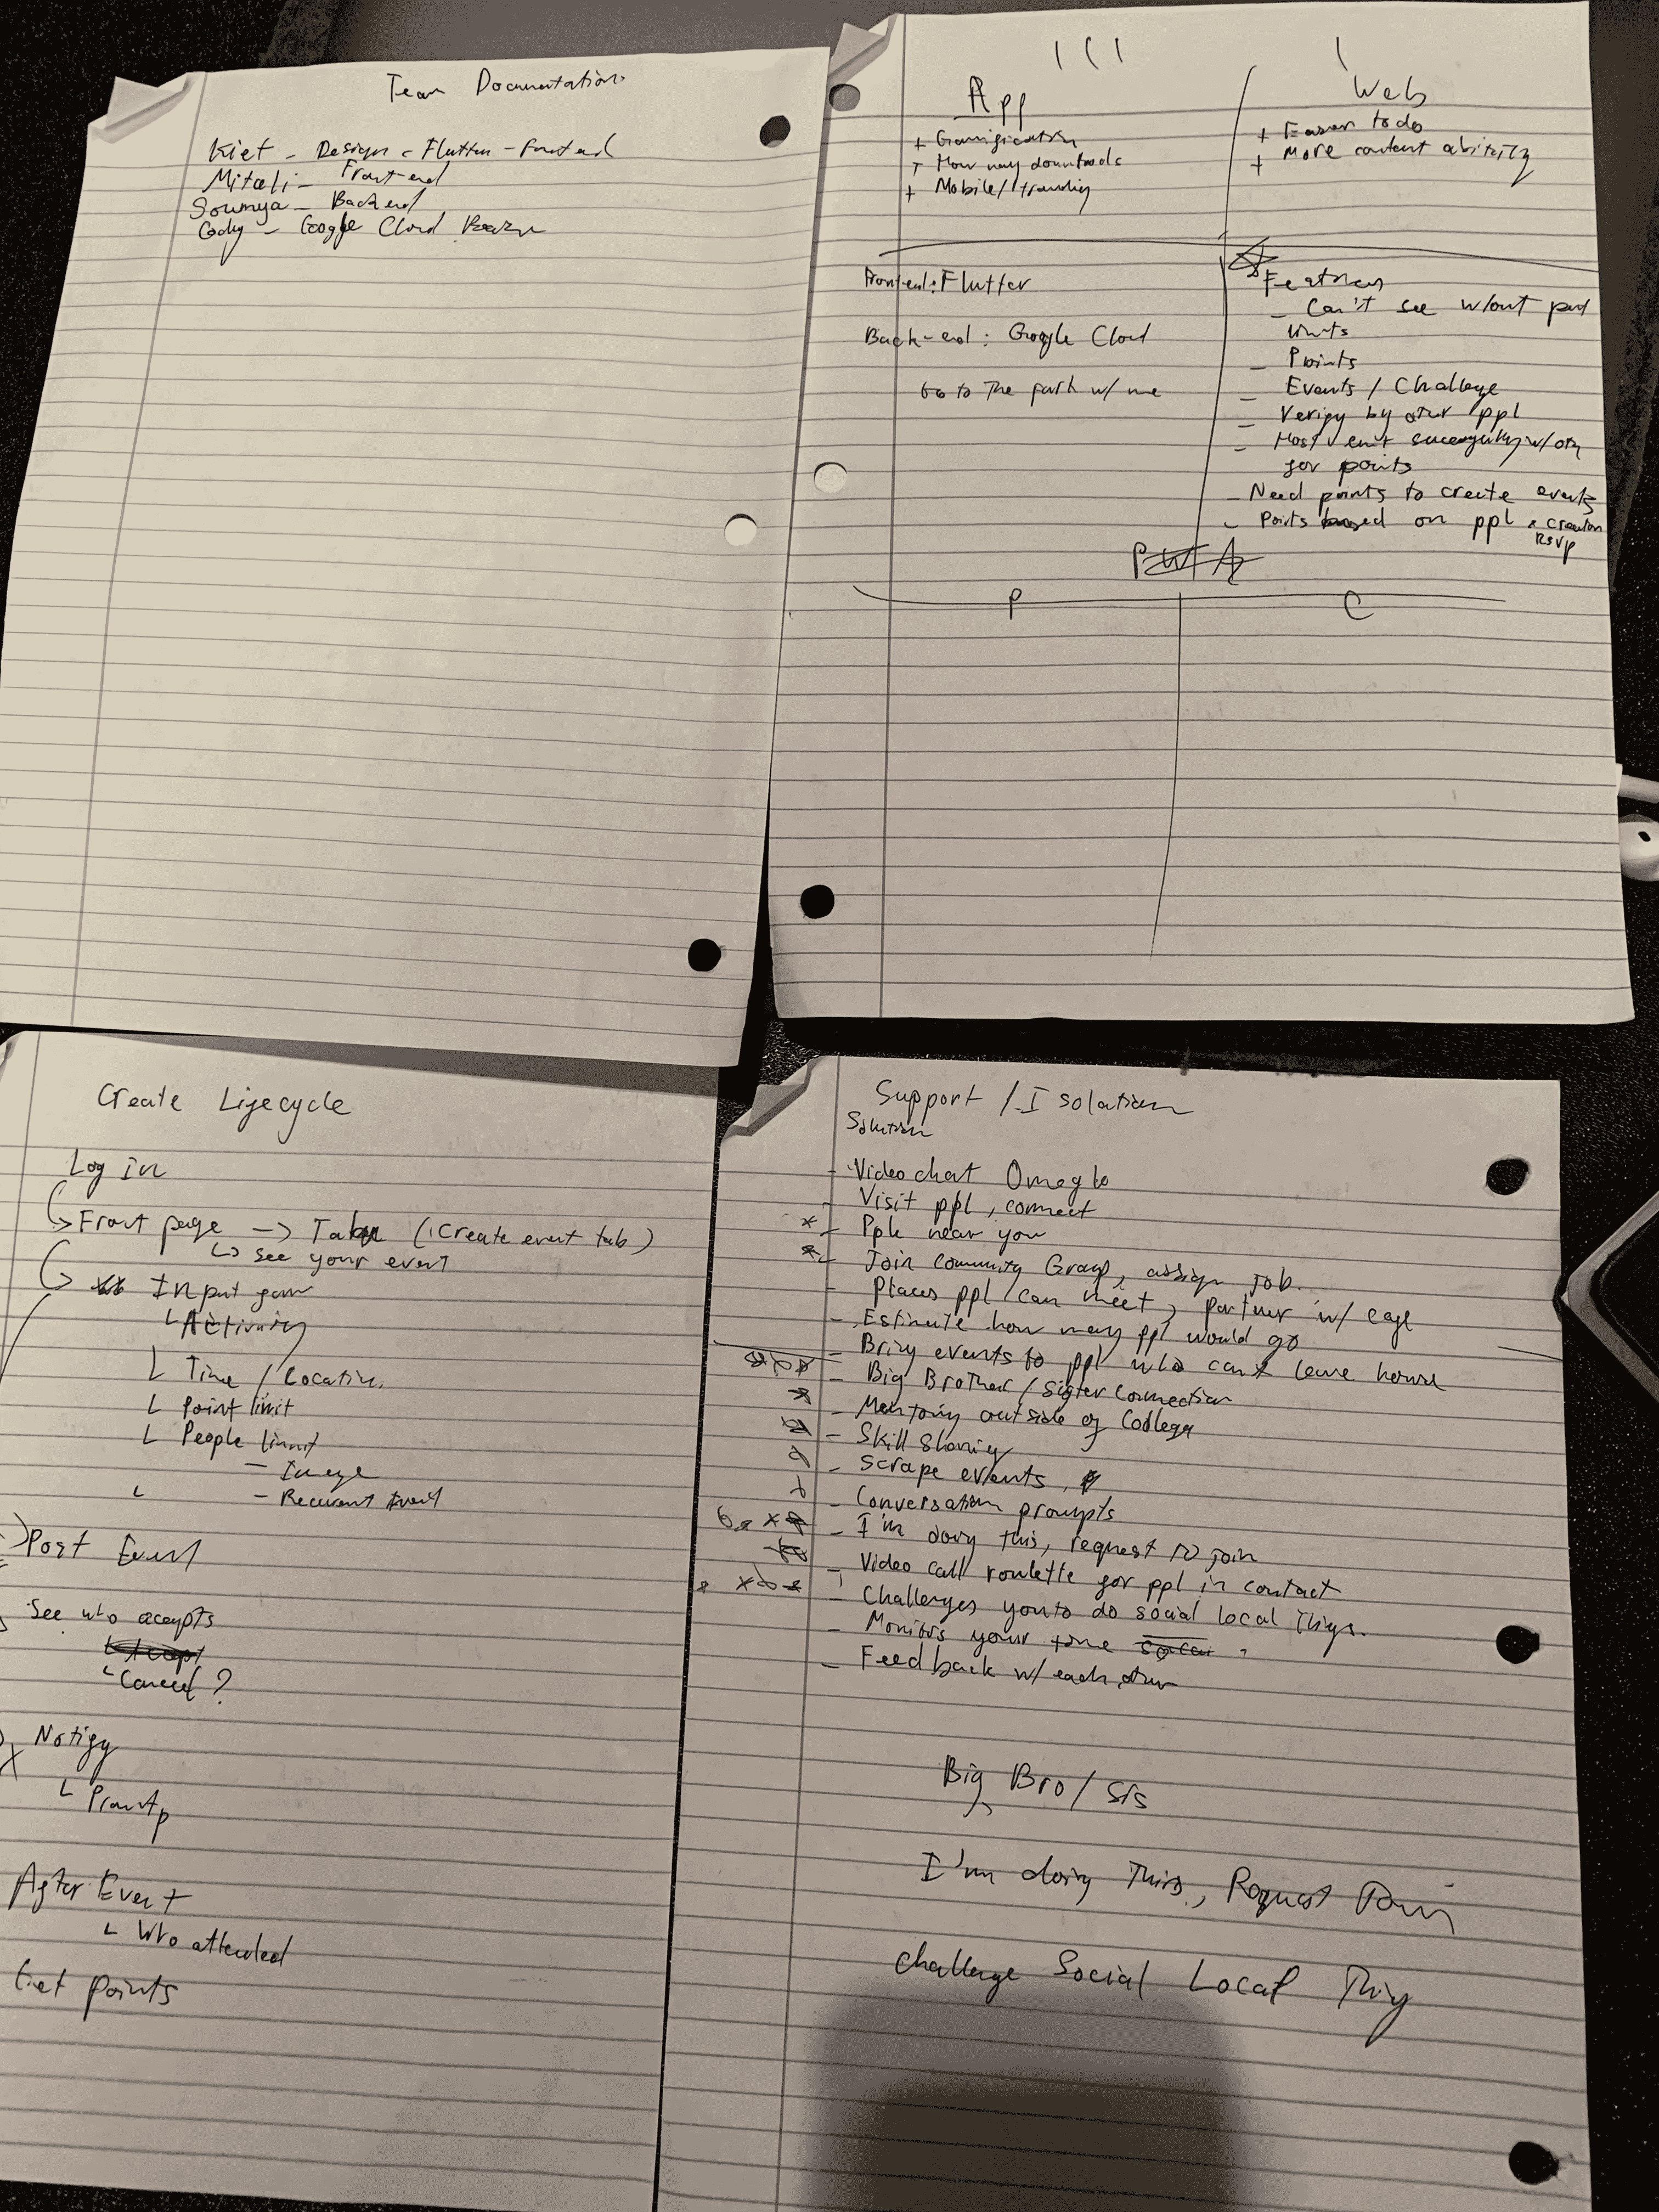 Team Documentation
Kiet - Design - Flutter - Frontend
Mitali - Front-end
Soumya - Backend
Cody - Google Cloud
App
+ Gamification
+ How many downloads
+ Mobile/
Web
+ Easier to do
+ More content ability
Frontend: Flutter
Back-end: Google Cloud
Go to The park w/ me
Features
- Can't see w/out
- Points
- Events / Challenge
- Verify by other ppl
- Host event successfully w/
for points
- Need points to create events
- Points based on ppl & creation
RSVP
PWA
P
C
Create Lifecycle
Log in
Front page -> (Create event tab)
see your event
Input
Activity
Time / Location
Point limit
People limit
- Image
- Recurrent Event
Post Event
See who accepts
Accept
Cancel?
Notify
Prompt
After Event
Who attended
Get points
Support / Isolation
Solution
- Video chat Omegle
- Visit ppl, connect
- Pple near you
- Join Community Group, assign job.
- Places ppl can meet, partner w/
- Estimate how many ppl would go
- Bring events to ppl who can't leave house
- Big Brother / Sister Connection
- Mentoring outside of College
- Skill Sharing
- Scrape events,
- Conversation prompts
- I'm doing this, request to join
- Video call roulette for ppl in contact
- Challenges you to do social local things.
- Monitors your time social
- Feedback w/ each other
Big Bro / Sis
I'm doing This, Request Join
Challenge Social Local Thing